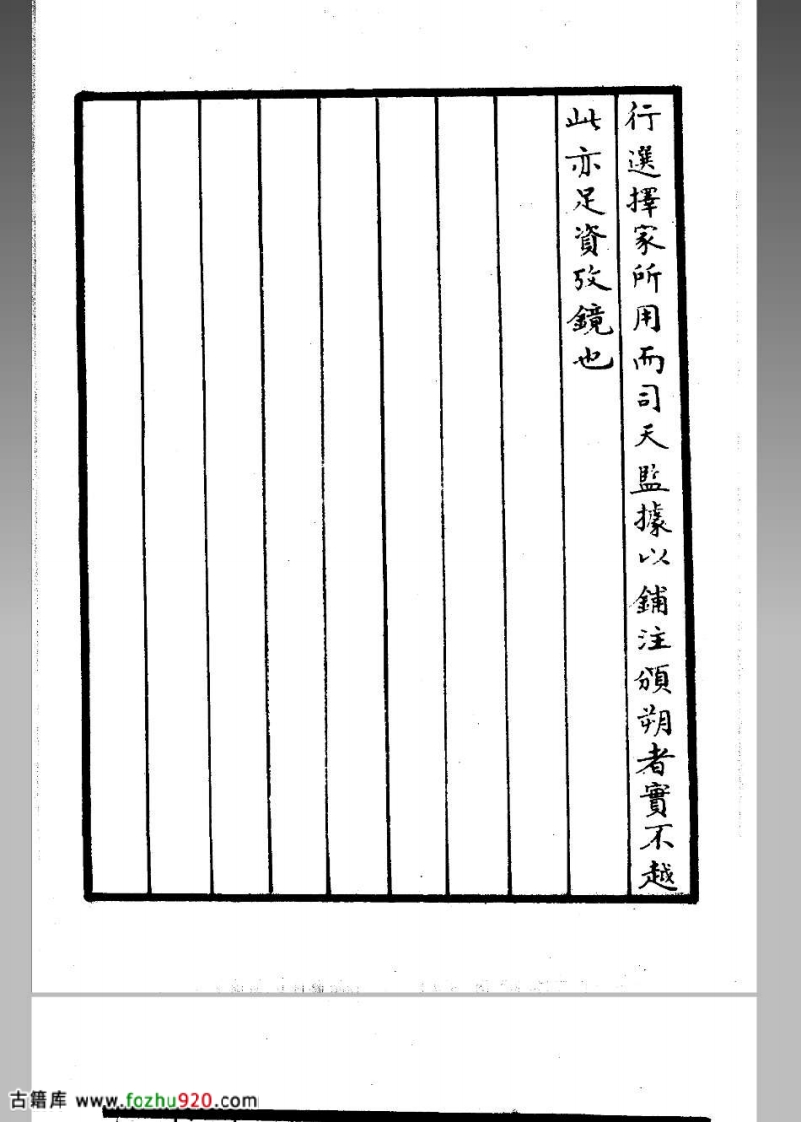 行選擇家所用而司天監據以鋪注頒朔者實不越
此亦足資攷鏡也
古籍库 www.fozhu920.com